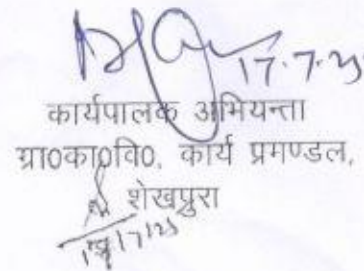 17.7.25
कार्यपालक अभियन्ता
ग्रा0का0वि0, कार्य प्रमण्डल,
शेखपुरा